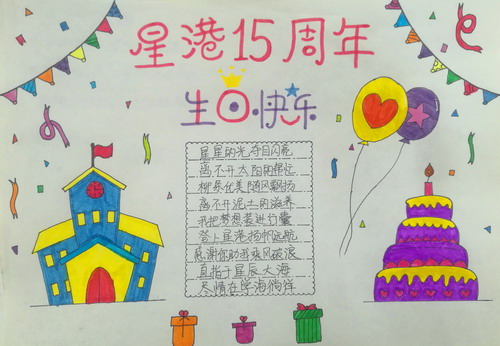 星港15周年
生日·快乐
星星的光夺目闪亮
离不开太阳的照
柳条优美随风飘扬
离不开泥土的滋养
我把梦想装进行囊
登上星港扬帆远航
感谢你助我乘风破浪
直指于星辰大海
尽情在学海徜徉